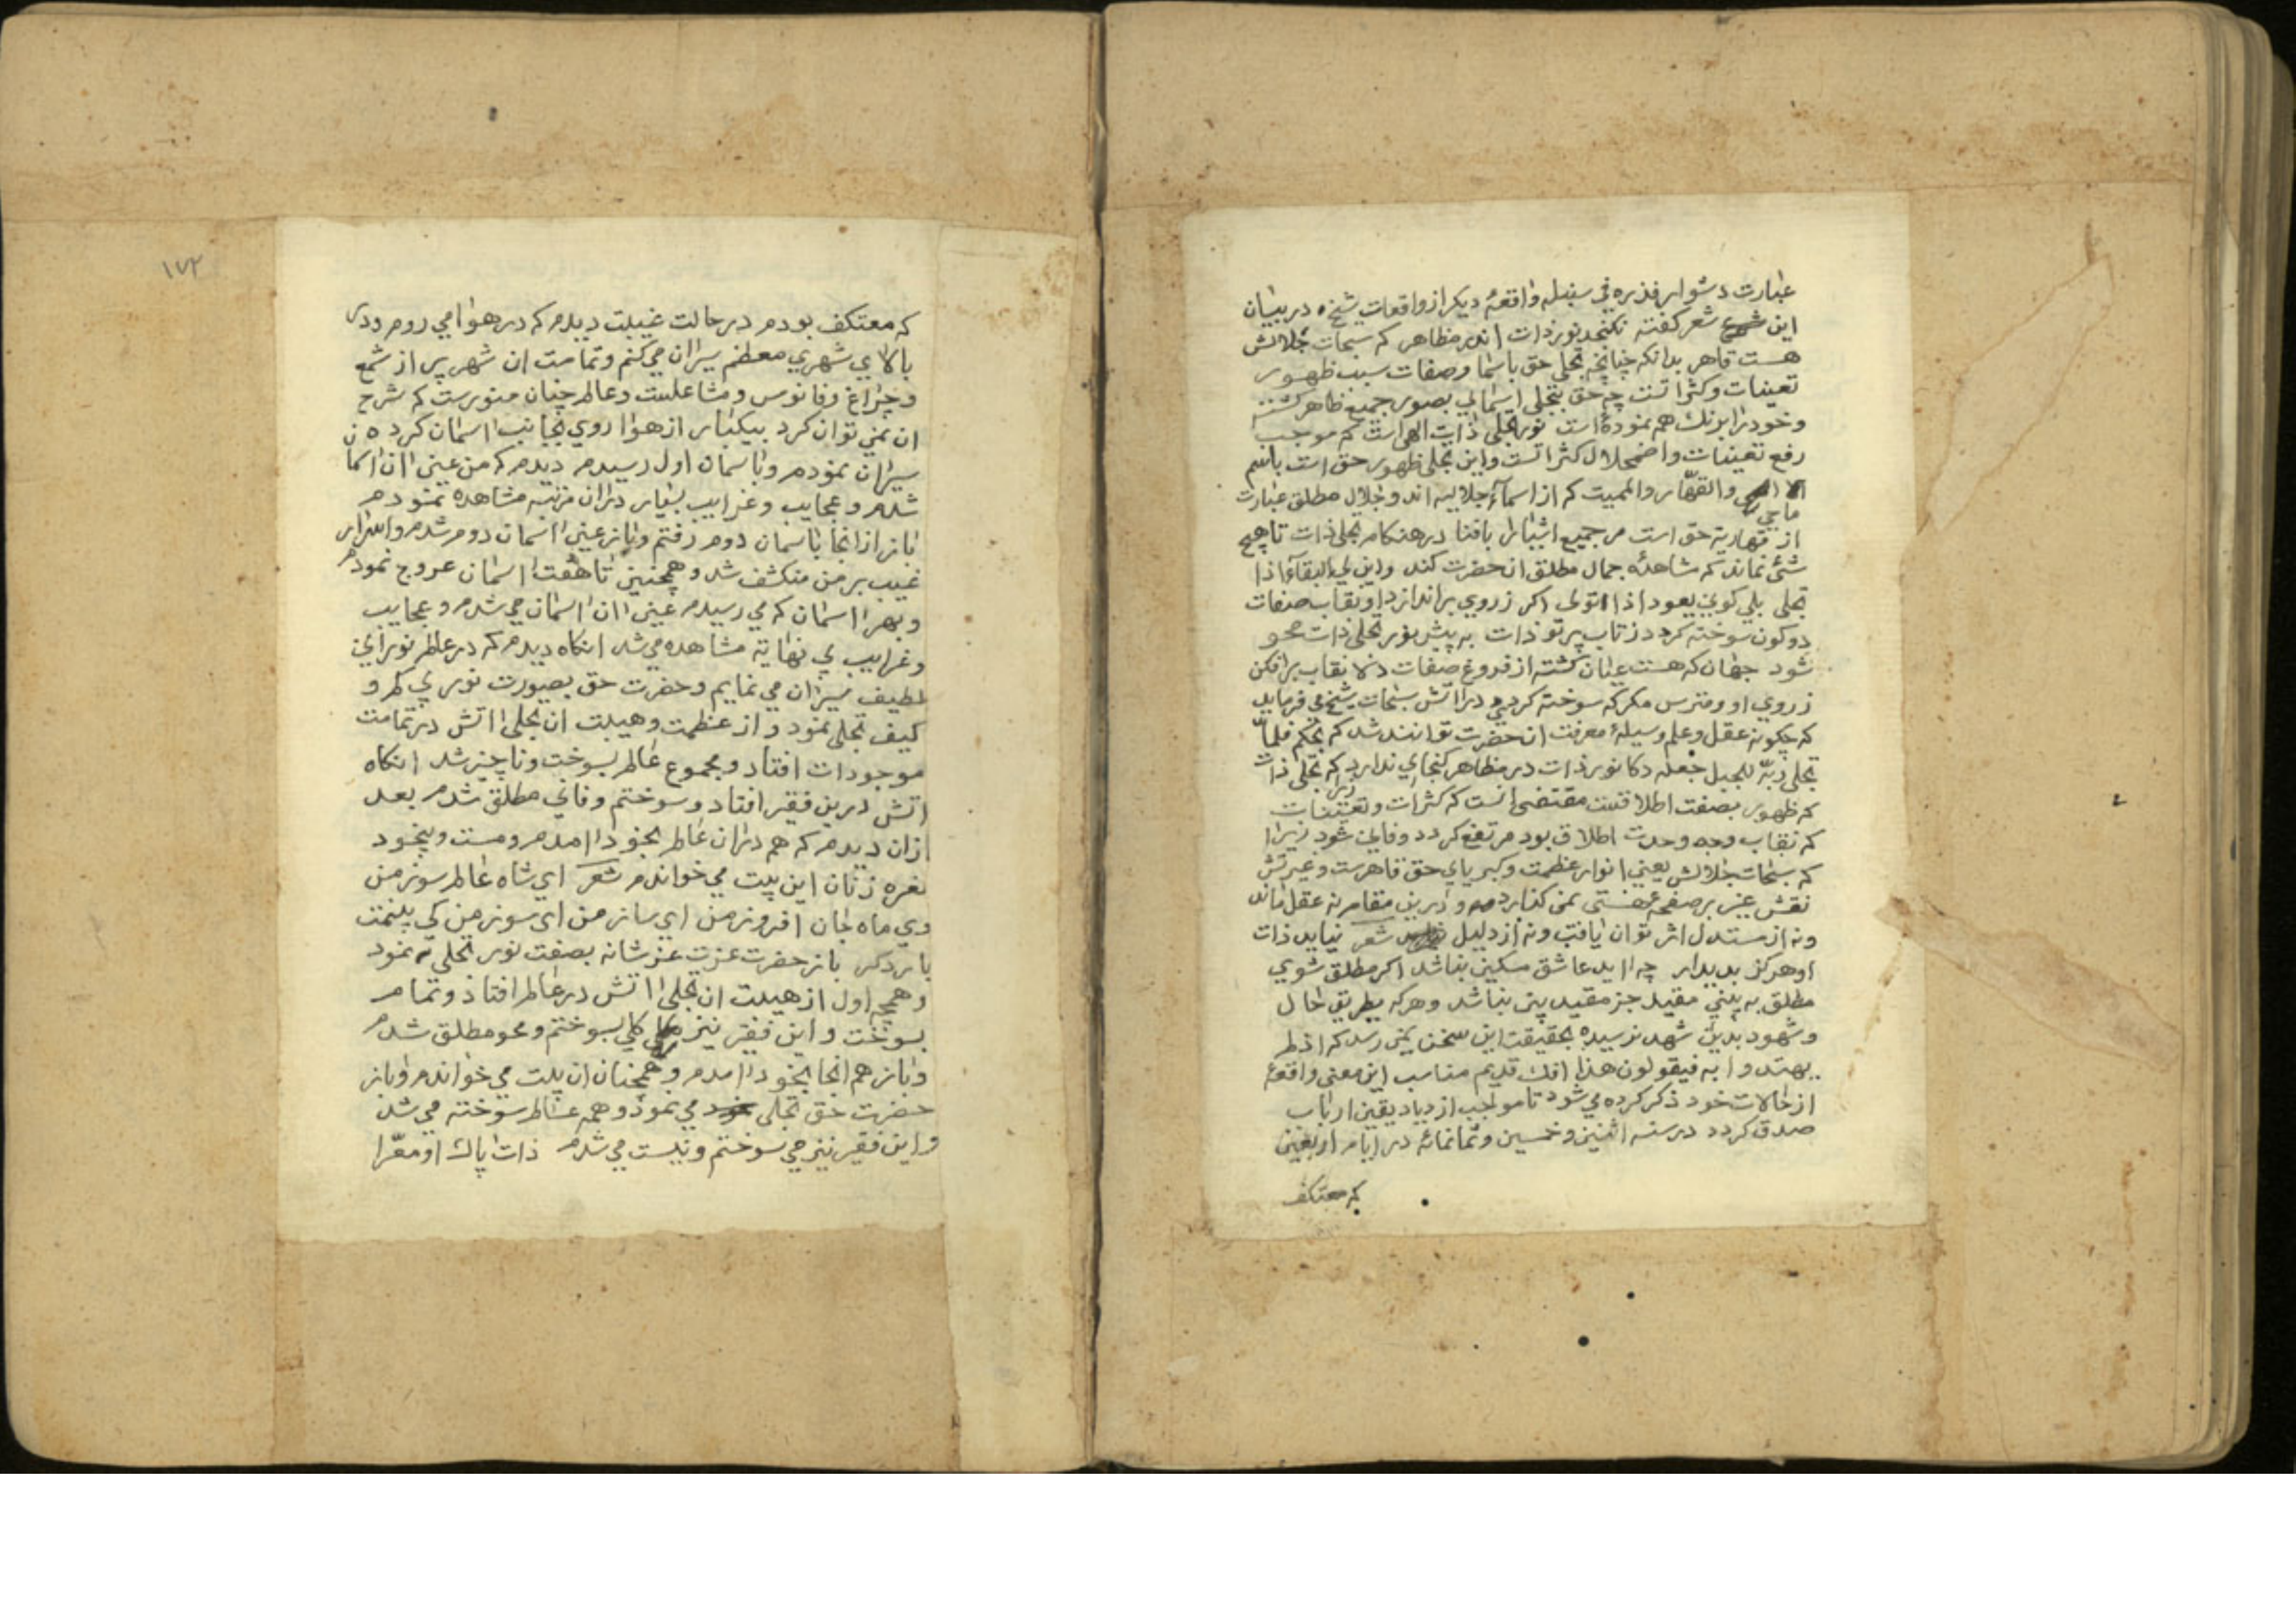 عبارت دشوار فذره في سنبله واقعهٔ ديكر از واقعات شيخ ه در بيان
اين شعر كفته نكنجد نور ذات اندر مظاهر كه سبحات جلالش
هست قاهر بدانكه چنانچه تجلى حق باسما وصفات سبب ظهور
تعينات وكثراتست چه حق بتجلي اسمائي بصور جميع ظاهر كشته
وخود را برنك همه نموده است نور تجلى ذات الهي است كه موجب
رفع تعينات واضمحلال كثراتست واين تجلى ظهور حق است باسم
ماحي والقهّار والمميت كه از اسمآء جلاليه اند وجلال مطلق عبارت
از قهاريه حق است مر جميع اشيا را بافنا در هنكام تجلى ذات تا هيچ
شئ نماند كه مشاهدهٔ جمال مطلق ان حضرت كند واين لي البقآء اذا
تجلى بلي كوني يعود اذا تولى اكر ز روي بر اندازد او نقاب صفات
دو كون سوخته كردد ز تاب پرتو ذات به پيش نور تجلى ذات محو
شود جهان كه هست عيان كشته از فروغ صفات دلا نقاب برافكن
ز روي او ومترس مكر كه سوخته كردي در اتش سبحات شيخ مي فرمايد
كه چكونه عقل وعلم وسيلهٔ معرفت ان حضرت توانند شد كه بحكم فلمّا
تجلى ربّه للجبل جعله دكا نور ذات در مظاهر كنجاي ندارد زيرا كه تجلى ذات
كه ظهور بصفت اطلاقست مقتضى انست كه كثرات وتعينات
كه نقاب وجه وحدت اطلاق بود مرتفع كردد وفاني شود زيرا
كه سبحات جلالش يعني انوار عظمت وكبرياي حق قاهرست وغيرتش
نقش غير بر صفحهٔ هستى نمى كذارد ودرين مقام نه عقل ماند
ونه از مستدل اثر توان يافت ونه از دليل شعر نيايد ذات
او هركز بديدار چه ايد عاشق مسكين بناشد اكر مطلق شوي
مطلق به بيني مقيد جز مقيد بين بناشد وهركه بطريق حال
وشهود بدين شهد نرسيده بحقيقت اين سخن نمى رسد كه اذ لم
يهتدوا به فيقولون هذا افك قديم مناسب اين معنى واقعهٔ
از حالات خود ذكر كرده مي شود تا موجب ازدياد يقين ارباب
صدق كردد در سنه اثنين وخمسين وثمانمائه در ايام اربعين
كه معتكف
١٧٢
كه معتكف بودم در حالت غيبت ديدم كه در هوا مي روم ودر
بالاي شهري معظم سيران مي كنم وتمامت ان شهر پر از شمع
وچراغ وفانوس ومشاعلست وعالم چنان منورست كه شرح
ان نمي توان كرد بيكبار از هوا روي بجانب اسمان كرده ن
سيران نمودم وباسمان اول رسيدم ديدم كه من عين ان اسما
شدم وعجايب وغرايب بسيار دران مرتبه مشاهده نمودم
باز از انجا باسمان دوم رفتم وباز عين اسمان دوم شدم واسرار
غيب بر من منكشف شد وهمچنين تا هفت اسمان عروج نمودم
وبهر اسمان كه مي رسيدم عين ان اسمان مي شدم وعجايب
وغرايب بي نهايه مشاهده مي شد انكاه ديدم كه در عالم نوراني
لطيف سيران مي نمايم وحضرت حق بصورت نور بي كم و
كيف تجلى نمود واز عظمت وهيبت ان تجلى اتش در تمامت
موجودات افتاد ومجموع عالم بسوخت وناچيز شد انكاه
اتش درين فقير افتاد وسوختم وفاني مطلق شدم بعد
ازان ديدم كه هم دران عالم بخود امدم ومست وبيخود
نعره زنان اين بيت مي خواندم شعر اي شاه عالم سوز من
وي ماه جان افروز من اي ساز من اي سوز من كي بينمت
بار دكر باز حضرت عزت عز شانه بصفت نور تجلى نمود
وهمچو اول از هيبت ان تجلى اتش در عالم افتاد وتمام
بسوخت واين فقير نيز كلي بسوختم ومحو مطلق شدم
وباز هم انجا بخود امدم وهمچنان ان بيت مي خواندم وباز
حضرت حق تجلى مي نمود وهمه عالم سوخته مي شد
واين فقير نيز مي سوختم ونيست مي شدم ذات پاك او معرّا